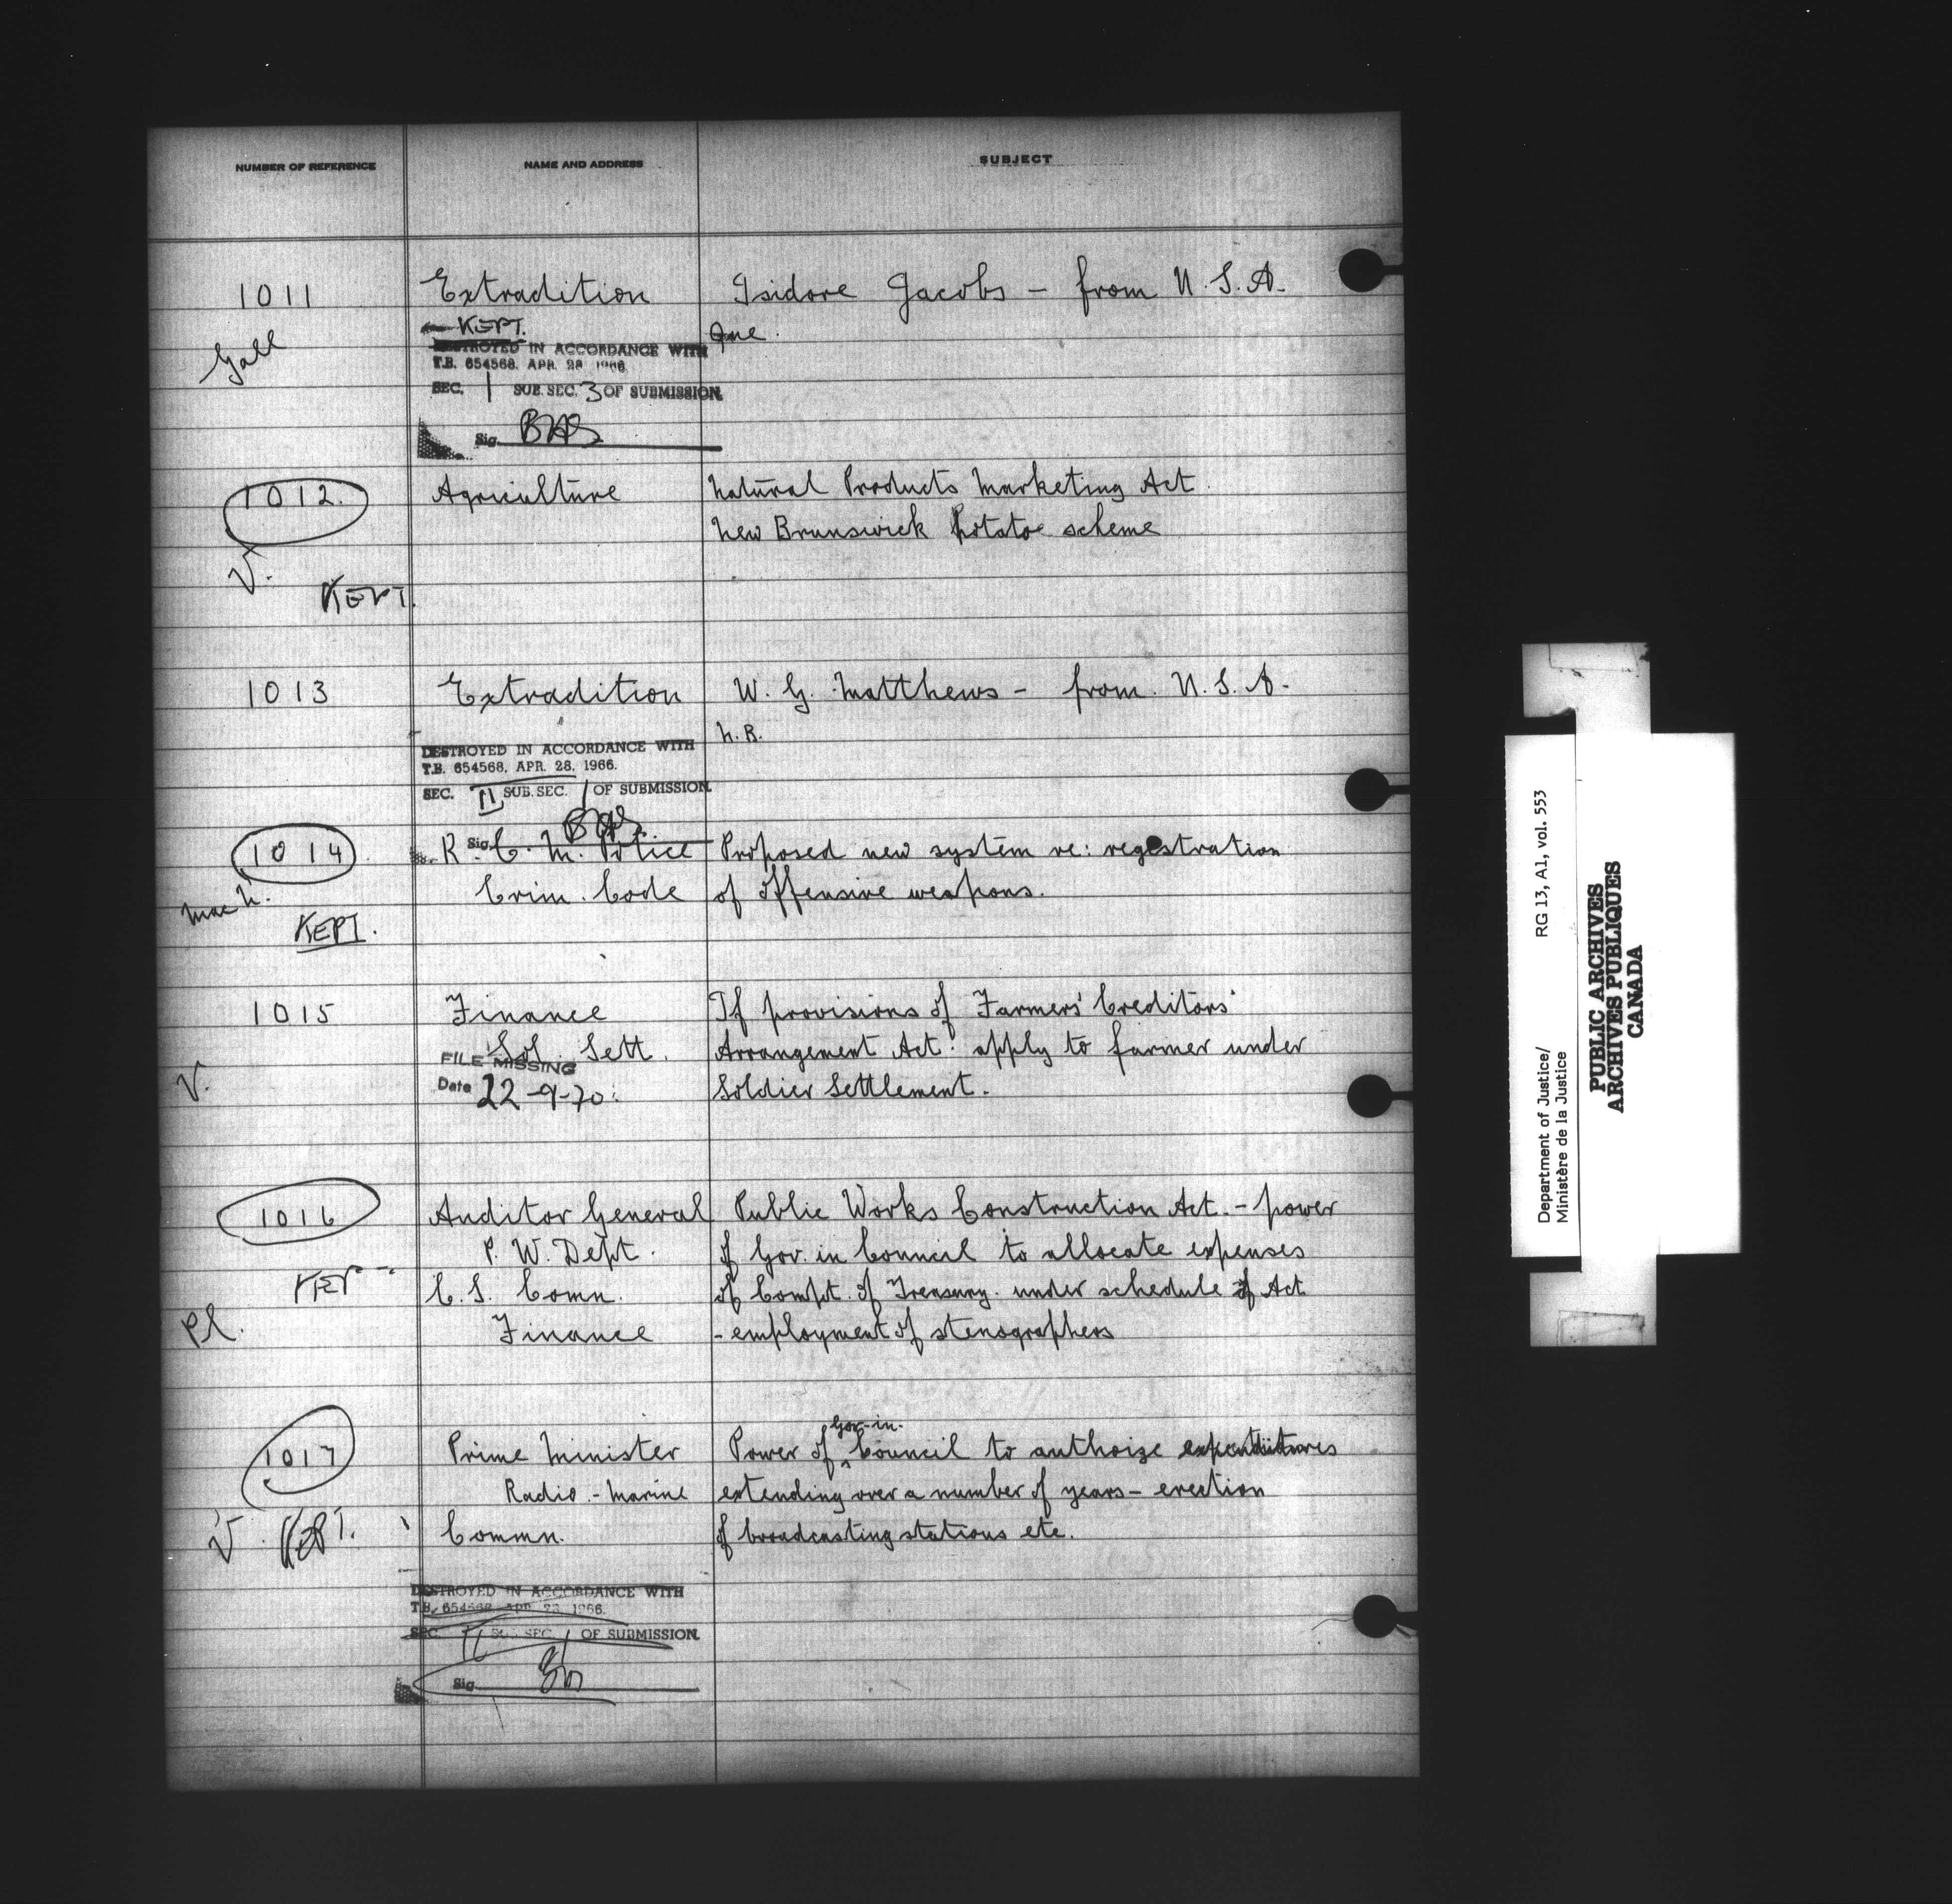 NUMBER OF REFERENCE NAME AND ADDRESS SUBJECT
1011 Extradition Isidore Jacobs - from U.S.A.
Gall
KEPT. Que.
DESTROYED IN ACCORDANCE WITH
T.B. 654568, APR. 28 1966
SEC. 1 SUB. SEC. 3 OF SUBMISSION
Sig.
1012. Agriculture Natural Products Marketing Act.
New Brunswick Potatoe scheme
V.
KEPT.
1013 Extradition W. G. Matthews - from U.S.A.
N.B.
DESTROYED IN ACCORDANCE WITH
T.B. 654568, APR. 28, 1966.
SEC. II SUB. SEC. 1 OF SUBMISSION
Sig.
1014 R. C. M. Police Proposed new system re: registration
Crim. Code of offensive weapons.
Mac N.
KEPT.
1015 Finance If provisions of Farmers' Creditors'
Sol. Sett. Arrangement Act. apply to farmer under
FILE MISSING
V. Date 22-9-70. Soldier Settlement.
1016 Auditor General Public Works Construction Act. - power
P. W. Dept. of Gov. in Council to allocate expenses
KEPT C. S. Comn. of Compt. of Treasury. under schedule of Act
Pl. Finance - employment of stenographers
Gov-in-
1017 Prime Minister Power of Council to authoize expenditures
Radio - Marine extending over a number of years - erection
V. KEPT. Commn. of broadcasting stations etc.
DESTROYED IN ACCORDANCE WITH
T.B. 654568, APR. 28, 1966.
SEC. II SUB. SEC. 1 OF SUBMISSION
Sig.
Department of Justice/ RG 13, A1, vol. 553
Ministère de la Justice
PUBLIC ARCHIVES
ARCHIVES PUBLIQUES
CANADA